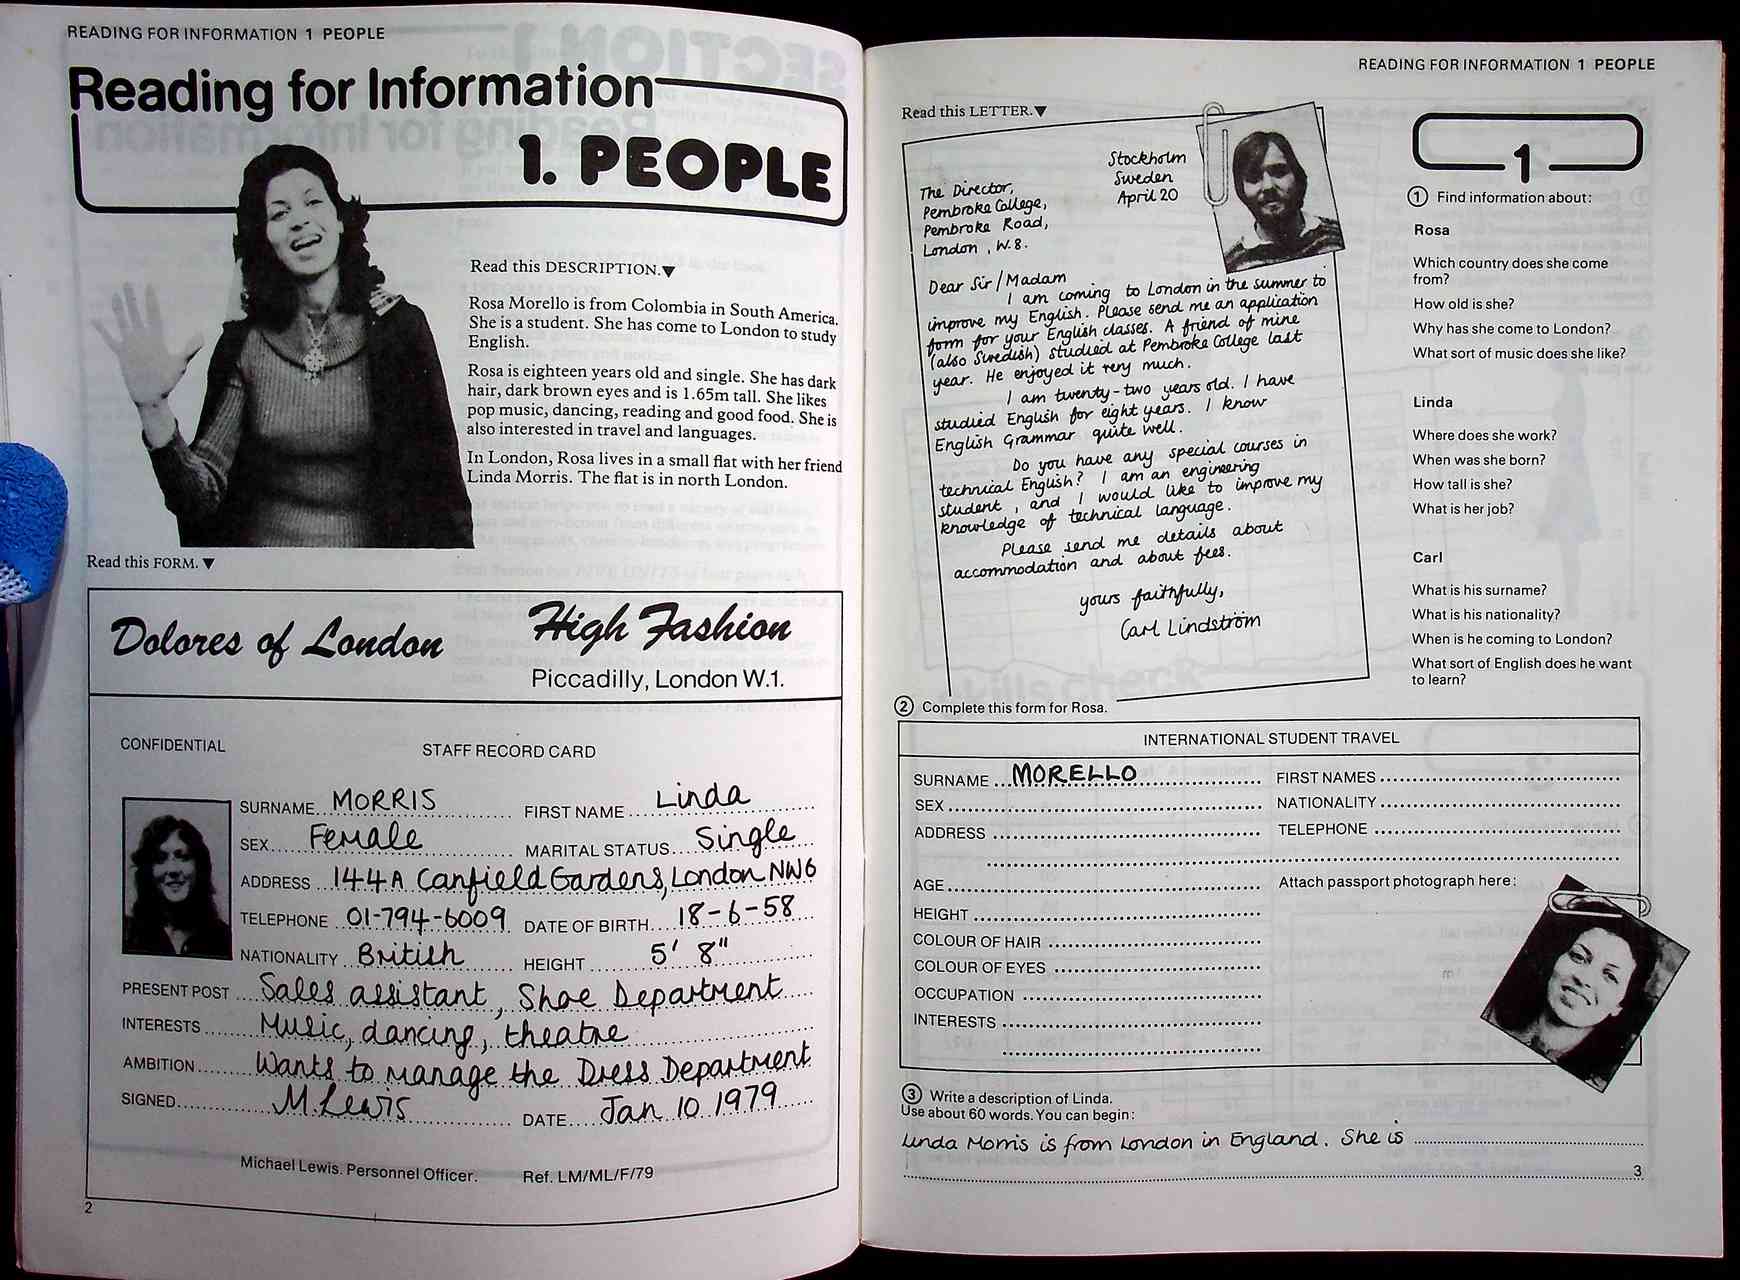 READING FOR INFORMATION 1 PEOPLE
Reading for Information
1. PEOPLE
Read this DESCRIPTION.▼
Rosa Morello is from Colombia in South America.
She is a student. She has come to London to study
English.
Rosa is eighteen years old and single. She has dark
hair, dark brown eyes and is 1.65m tall. She likes
pop music, dancing, reading and good food. She is
also interested in travel and languages.
In London, Rosa lives in a small flat with her friend
Linda Morris. The flat is in north London.
Read this FORM. ▼
Dolores of London
High Fashion
Piccadilly, London W.1.
CONFIDENTIAL
STAFF RECORD CARD
SURNAME MORRIS FIRST NAME Linda
SEX Female MARITAL STATUS Single
ADDRESS 144A Canfield Gardens, London NW6
TELEPHONE 01-794-6009 DATE OF BIRTH 18-6-58
NATIONALITY British HEIGHT 5' 8"
PRESENT POST Sales assistant, Shoe Department
INTERESTS Music, dancing, theatre
AMBITION Wants to manage the Dress Department
SIGNED M. Lewis DATE Jan 10 1979
Michael Lewis. Personnel Officer. Ref. LM/ML/F/79
2
READING FOR INFORMATION 1 PEOPLE
Read this LETTER.▼
Stockholm
Sweden
April 20
The Director,
Pembroke College,
Pembroke Road,
London, W.8.
Dear Sir/Madam
I am coming to London in the summer to
improve my English. Please send me an application
form for your English classes. A friend of mine
(also Swedish) studied at Pembroke College last
year. He enjoyed it very much.
I am twenty-two years old. I have
studied English for eight years. I know
English Grammar quite well.
Do you have any special courses in
technical English? I am an engineering
student, and I would like to improve my
knowledge of technical language.
Please send me details about
accommodation and about fees.
yours faithfully,
Carl Lindström
1
① Find information about:
Rosa
Which country does she come
from?
How old is she?
Why has she come to London?
What sort of music does she like?
Linda
Where does she work?
When was she born?
How tall is she?
What is her job?
Carl
What is his surname?
What is his nationality?
When is he coming to London?
What sort of English does he want
to learn?
② Complete this form for Rosa.
INTERNATIONAL STUDENT TRAVEL
SURNAME MORELLO FIRST NAMES
SEX NATIONALITY
ADDRESS TELEPHONE
AGE Attach passport photograph here:
HEIGHT
COLOUR OF HAIR
COLOUR OF EYES
OCCUPATION
INTERESTS
③ Write a description of Linda.
Use about 60 words. You can begin:
Linda Morris is from London in England. She is
3